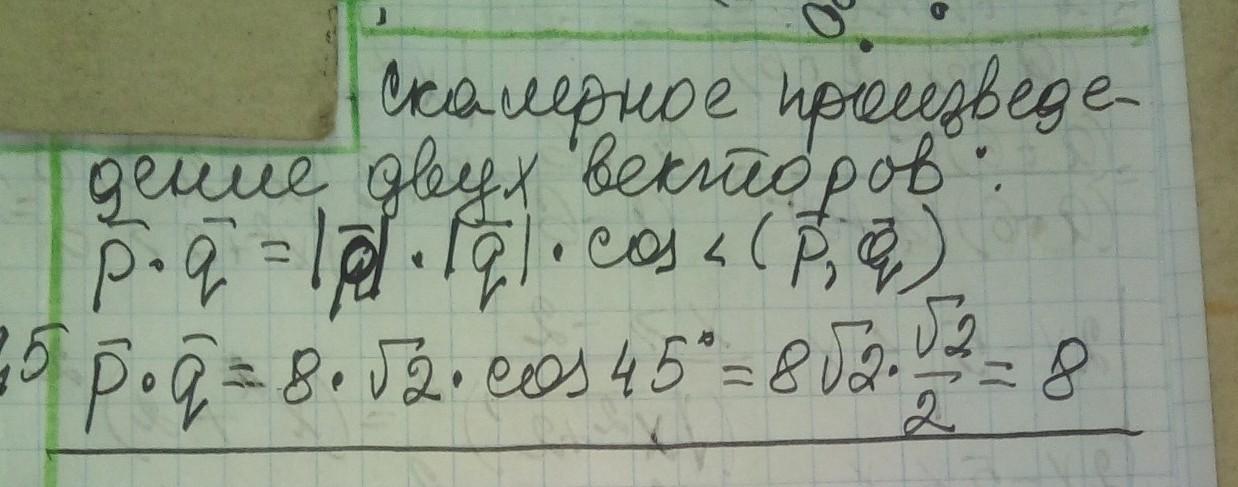 скалярное произведе-
дение двух векторов:
p̄·q̄ = |p̄|·|q̄|·cos<(p̄, q̄)
,5 p̄·q̄ = 8·√2·cos 45° = 8√2·√2/2 = 8